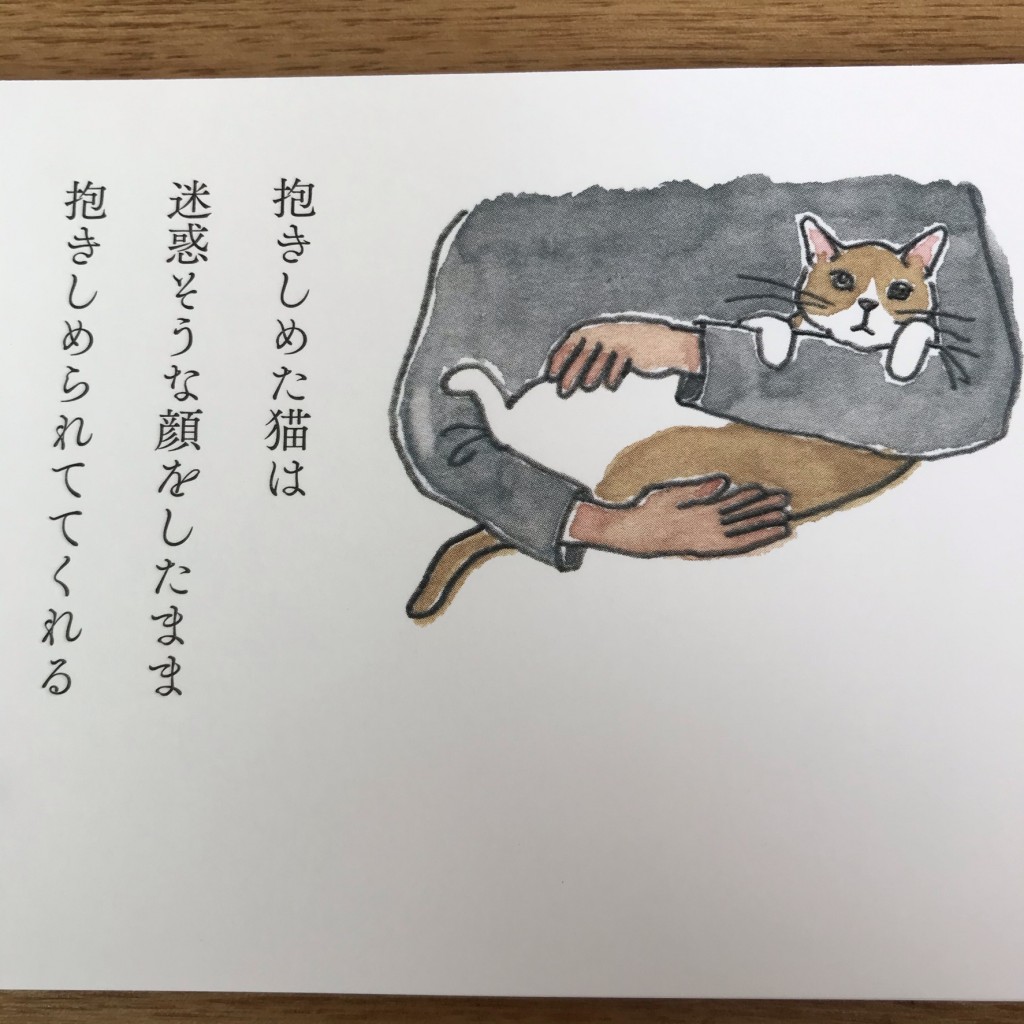 抱きしめた猫は
迷惑そうな顔をしたまま
抱きしめられててくれる